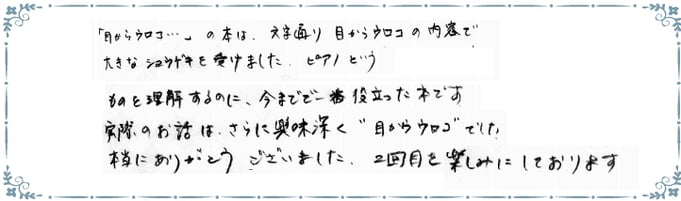 「目からウロコ…」の本は、文字通り目からウロコの内容で
大きなショウゲキを受けました。ピアノという
ものを理解するのに、今までで一番役立った本です
実際のお話は、さらに興味深く“目からウロコ”でした。
本当にありがとうございました。2回目を楽しみにしております